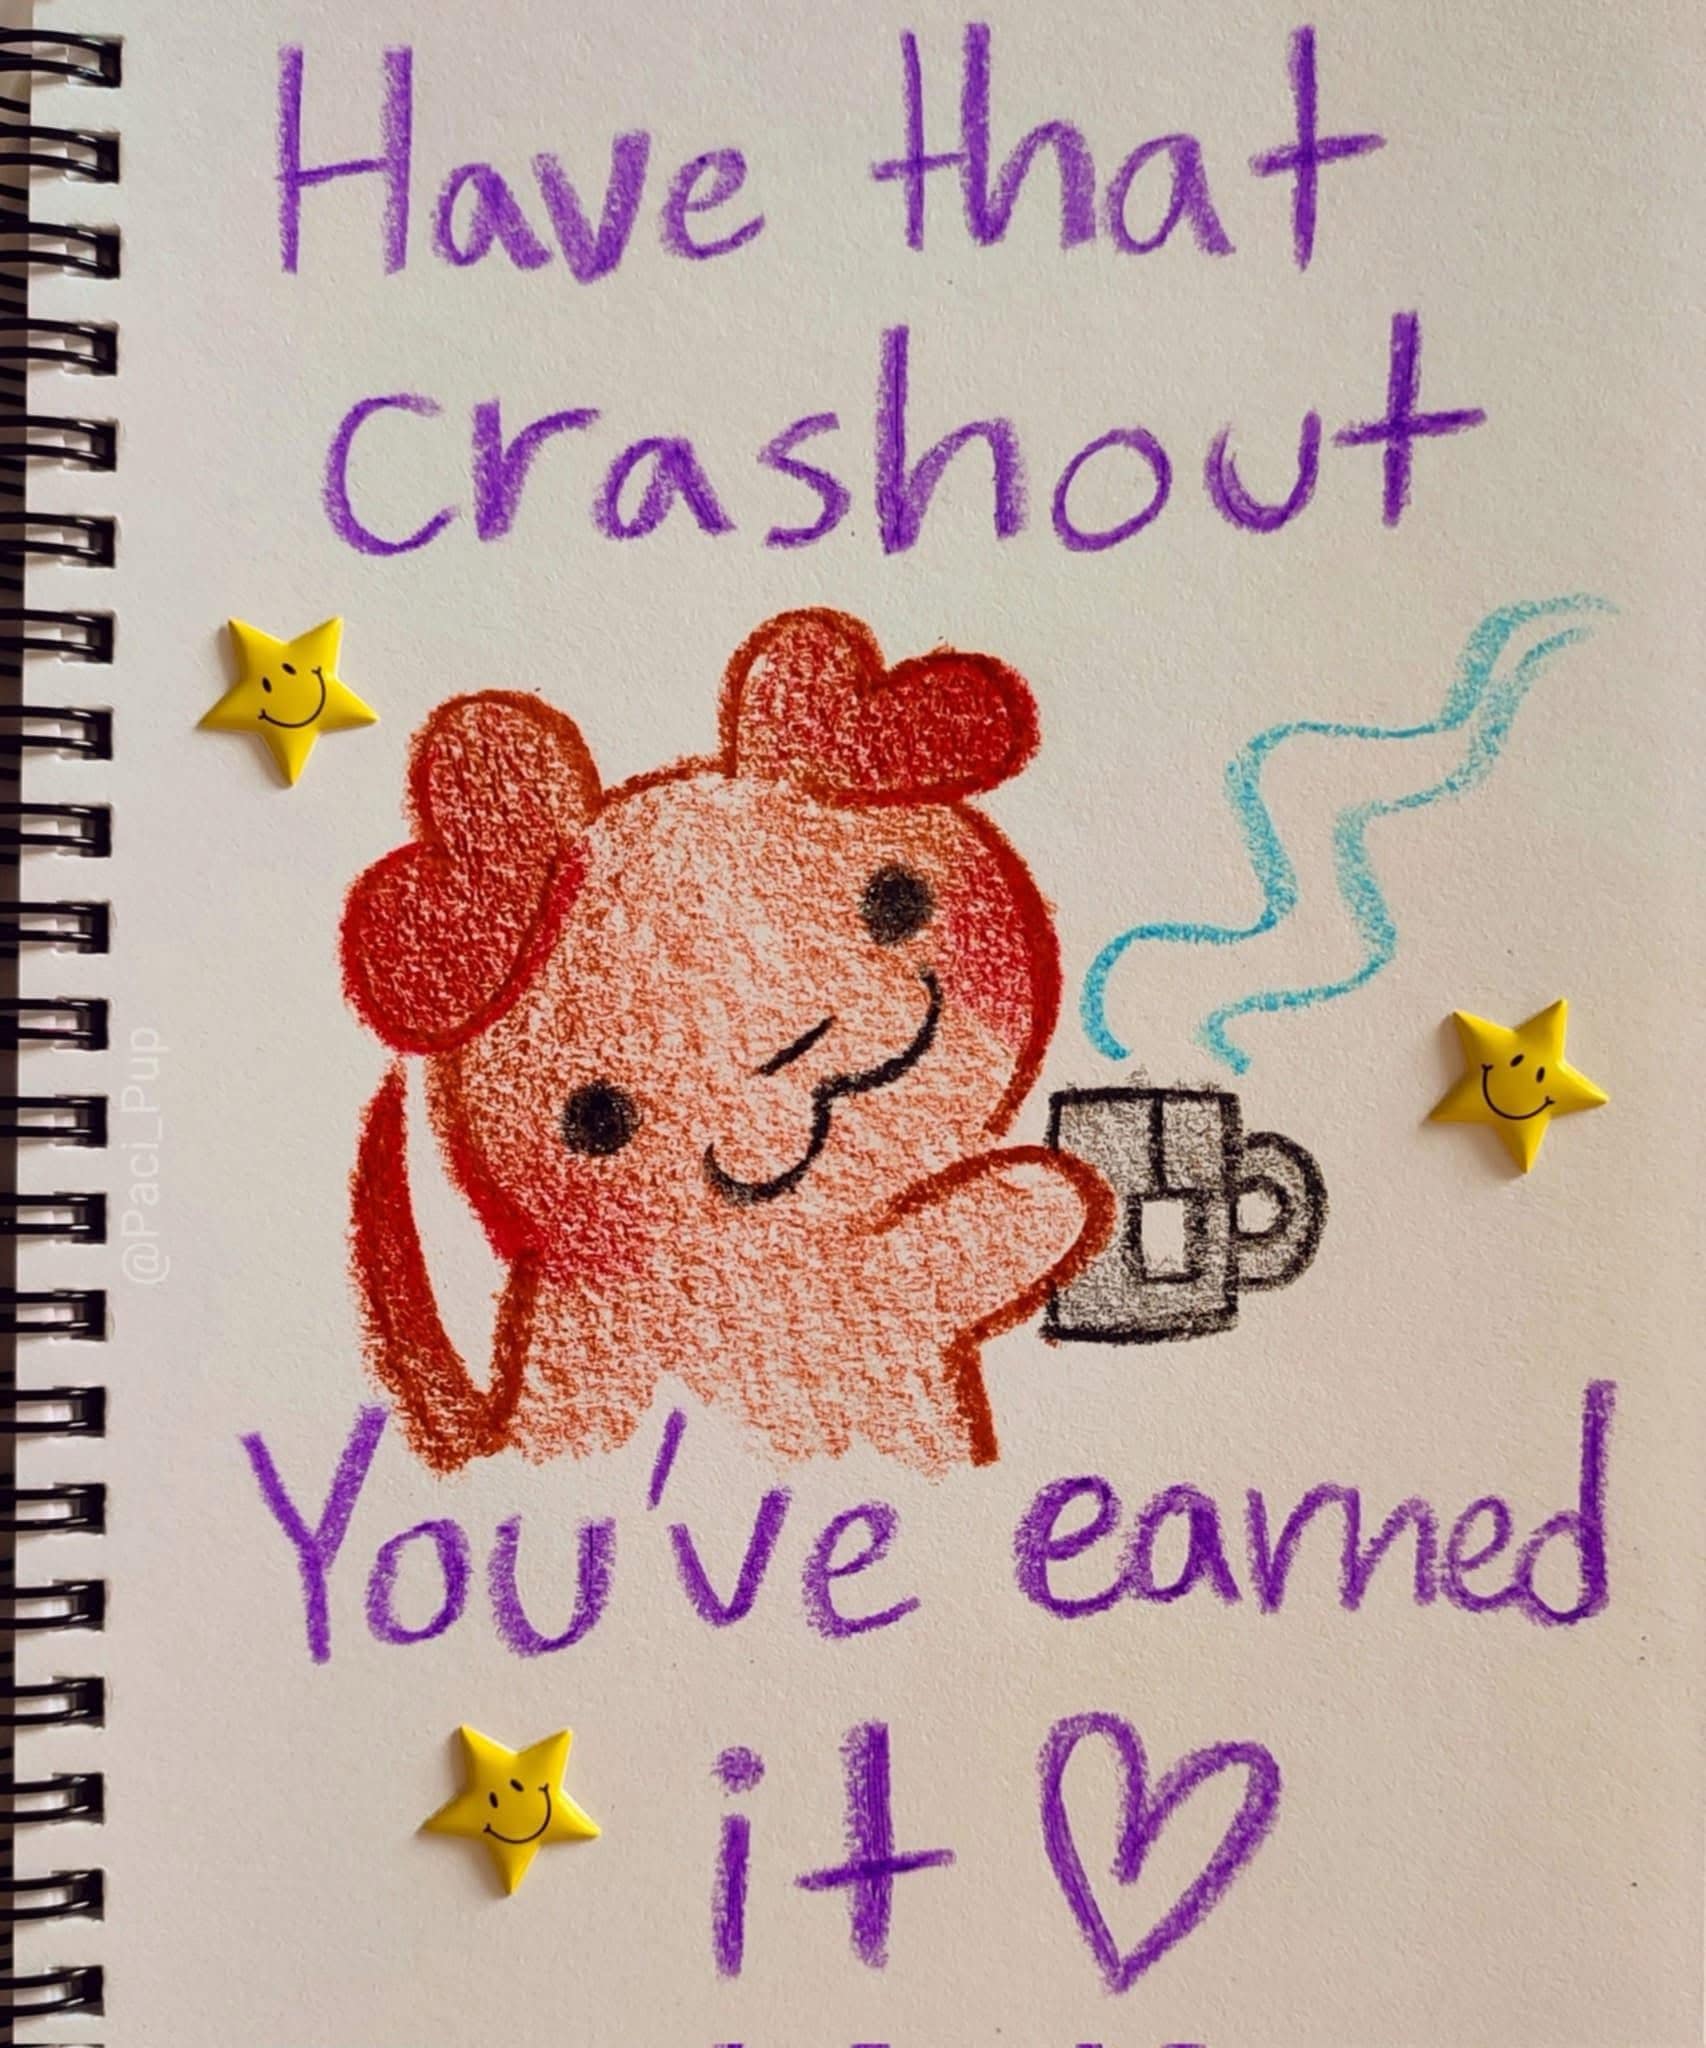 Have that
crashout
@Paci_Pup
You've earned
it ♡